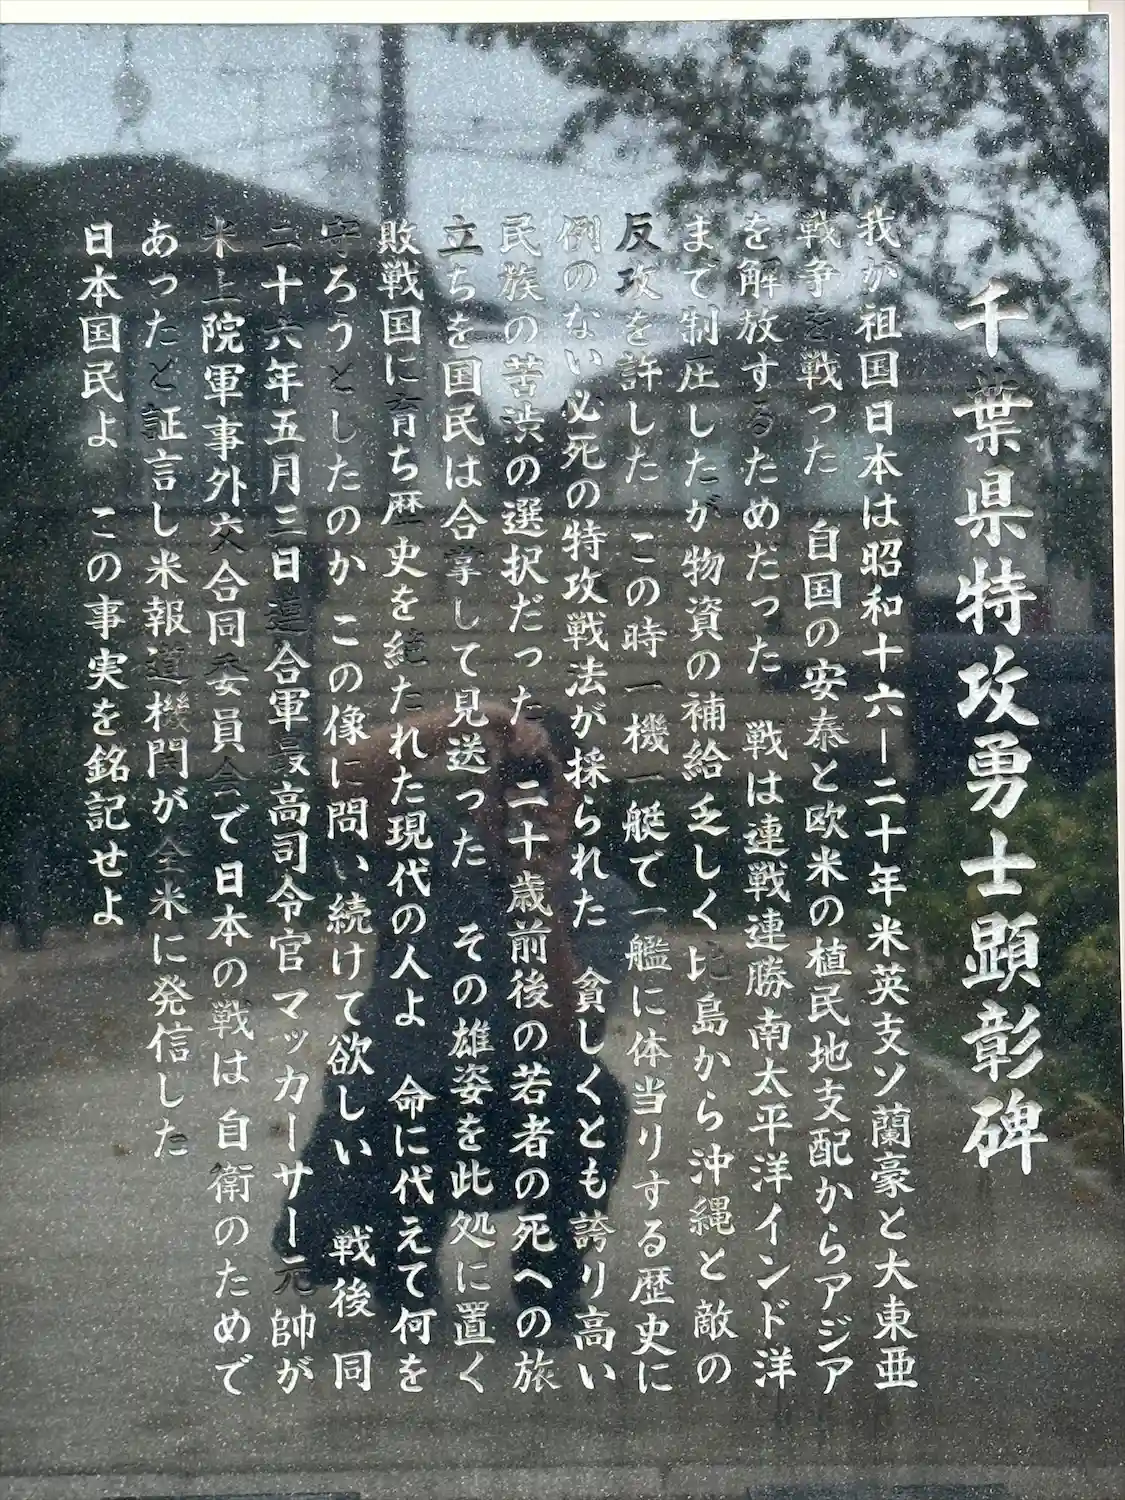 千葉県特攻勇士顕彰碑
我が祖国日本は昭和十六ー二十年米英支ソ蘭豪と大東亜
戦争を戦った　自国の安泰と欧米の植民地支配からアジア
を解放するためだった　戦は連戦連勝南太平洋インド洋
まで制圧したが物資の補給乏しく比島から沖縄と敵の
反攻を許した　この時一機一艇で一艦に体当りする歴史に
例のない必死の特攻戦法が採られた　貧しくとも誇り高い
民族の苦渋の選択だった　二十歳前後の若者の死への旅
立ちを国民は合掌して見送った　その雄姿を此処に置く
敗戦国に育ち歴史を絶たれた現代の人よ　命に代えて何を
守ろうとしたのか　この像に問い続けて欲しい　戦後　同
二十六年五月三日連合軍最高司令官マッカーサー元帥が
米上院軍事外交合同委員会で日本の戦は自衛のためで
あったと証言し米報道機関が全米に発信した
日本国民よ　この事実を銘記せよ